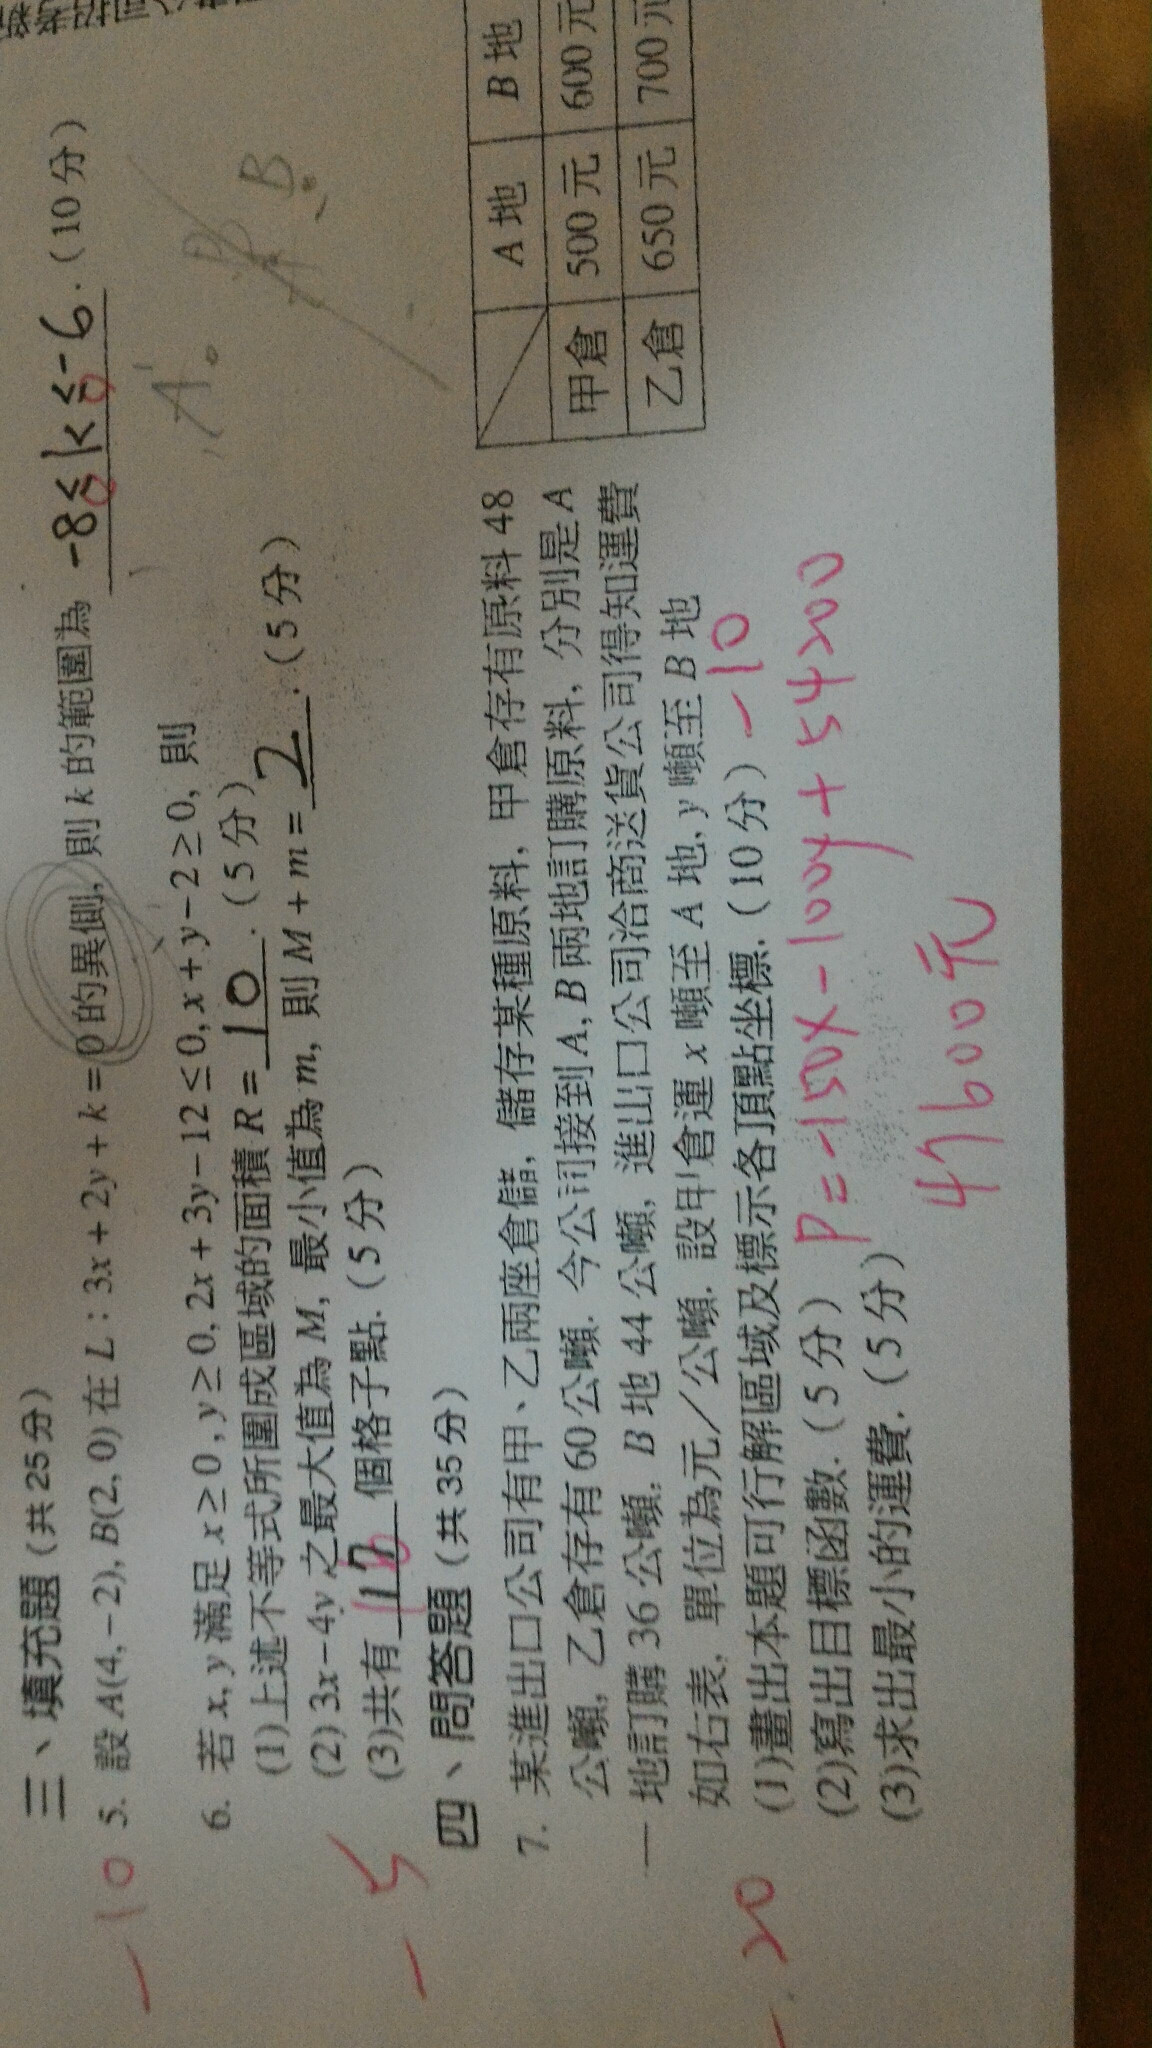 三、填充題(共25分)
-10
5. 設 A(4, -2), B(2, 0) 在 L : 3x + 2y + k = 0 的異側, 則 k 的範圍為 -8 ≤ k ≤ -6 . (10分)
A'
B
A
B
6. 若 x, y 滿足 x ≥ 0, y ≥ 0, 2x + 3y - 12 ≤ 0, x + y - 2 ≥ 0, 則
(1)上述不等式所圍成區域的面積 R = 10 . (5分)
(2) 3x - 4y 之最大值為 M, 最小值為 m, 則 M + m = 2 . (5分)
(3)共有 個格子點. (5分)
-5
四、問答題(共35分)
7. 某進出口公司有甲、乙兩座倉儲, 儲存某種原料, 甲倉存有原料 48
公噸, 乙倉存有 60 公噸. 今公司接到 A, B 兩地訂購原料, 分別是 A
地訂購 36 公噸, B 地 44 公噸, 進出口公司洽商送貨公司得知運費
如右表, 單位為元／公噸. 設甲倉運 x 噸至 A 地, y 噸至 B 地
(1)畫出本題可行解區域及標示各頂點坐標. (10分) -10
(2)寫出目標函數. (5分) P = -150x - 100y + 54200
(3)求出最小的運費. (5分)
47600元
-20
A 地 B 地
甲倉 500 元 600 元
乙倉 650 元 700 元